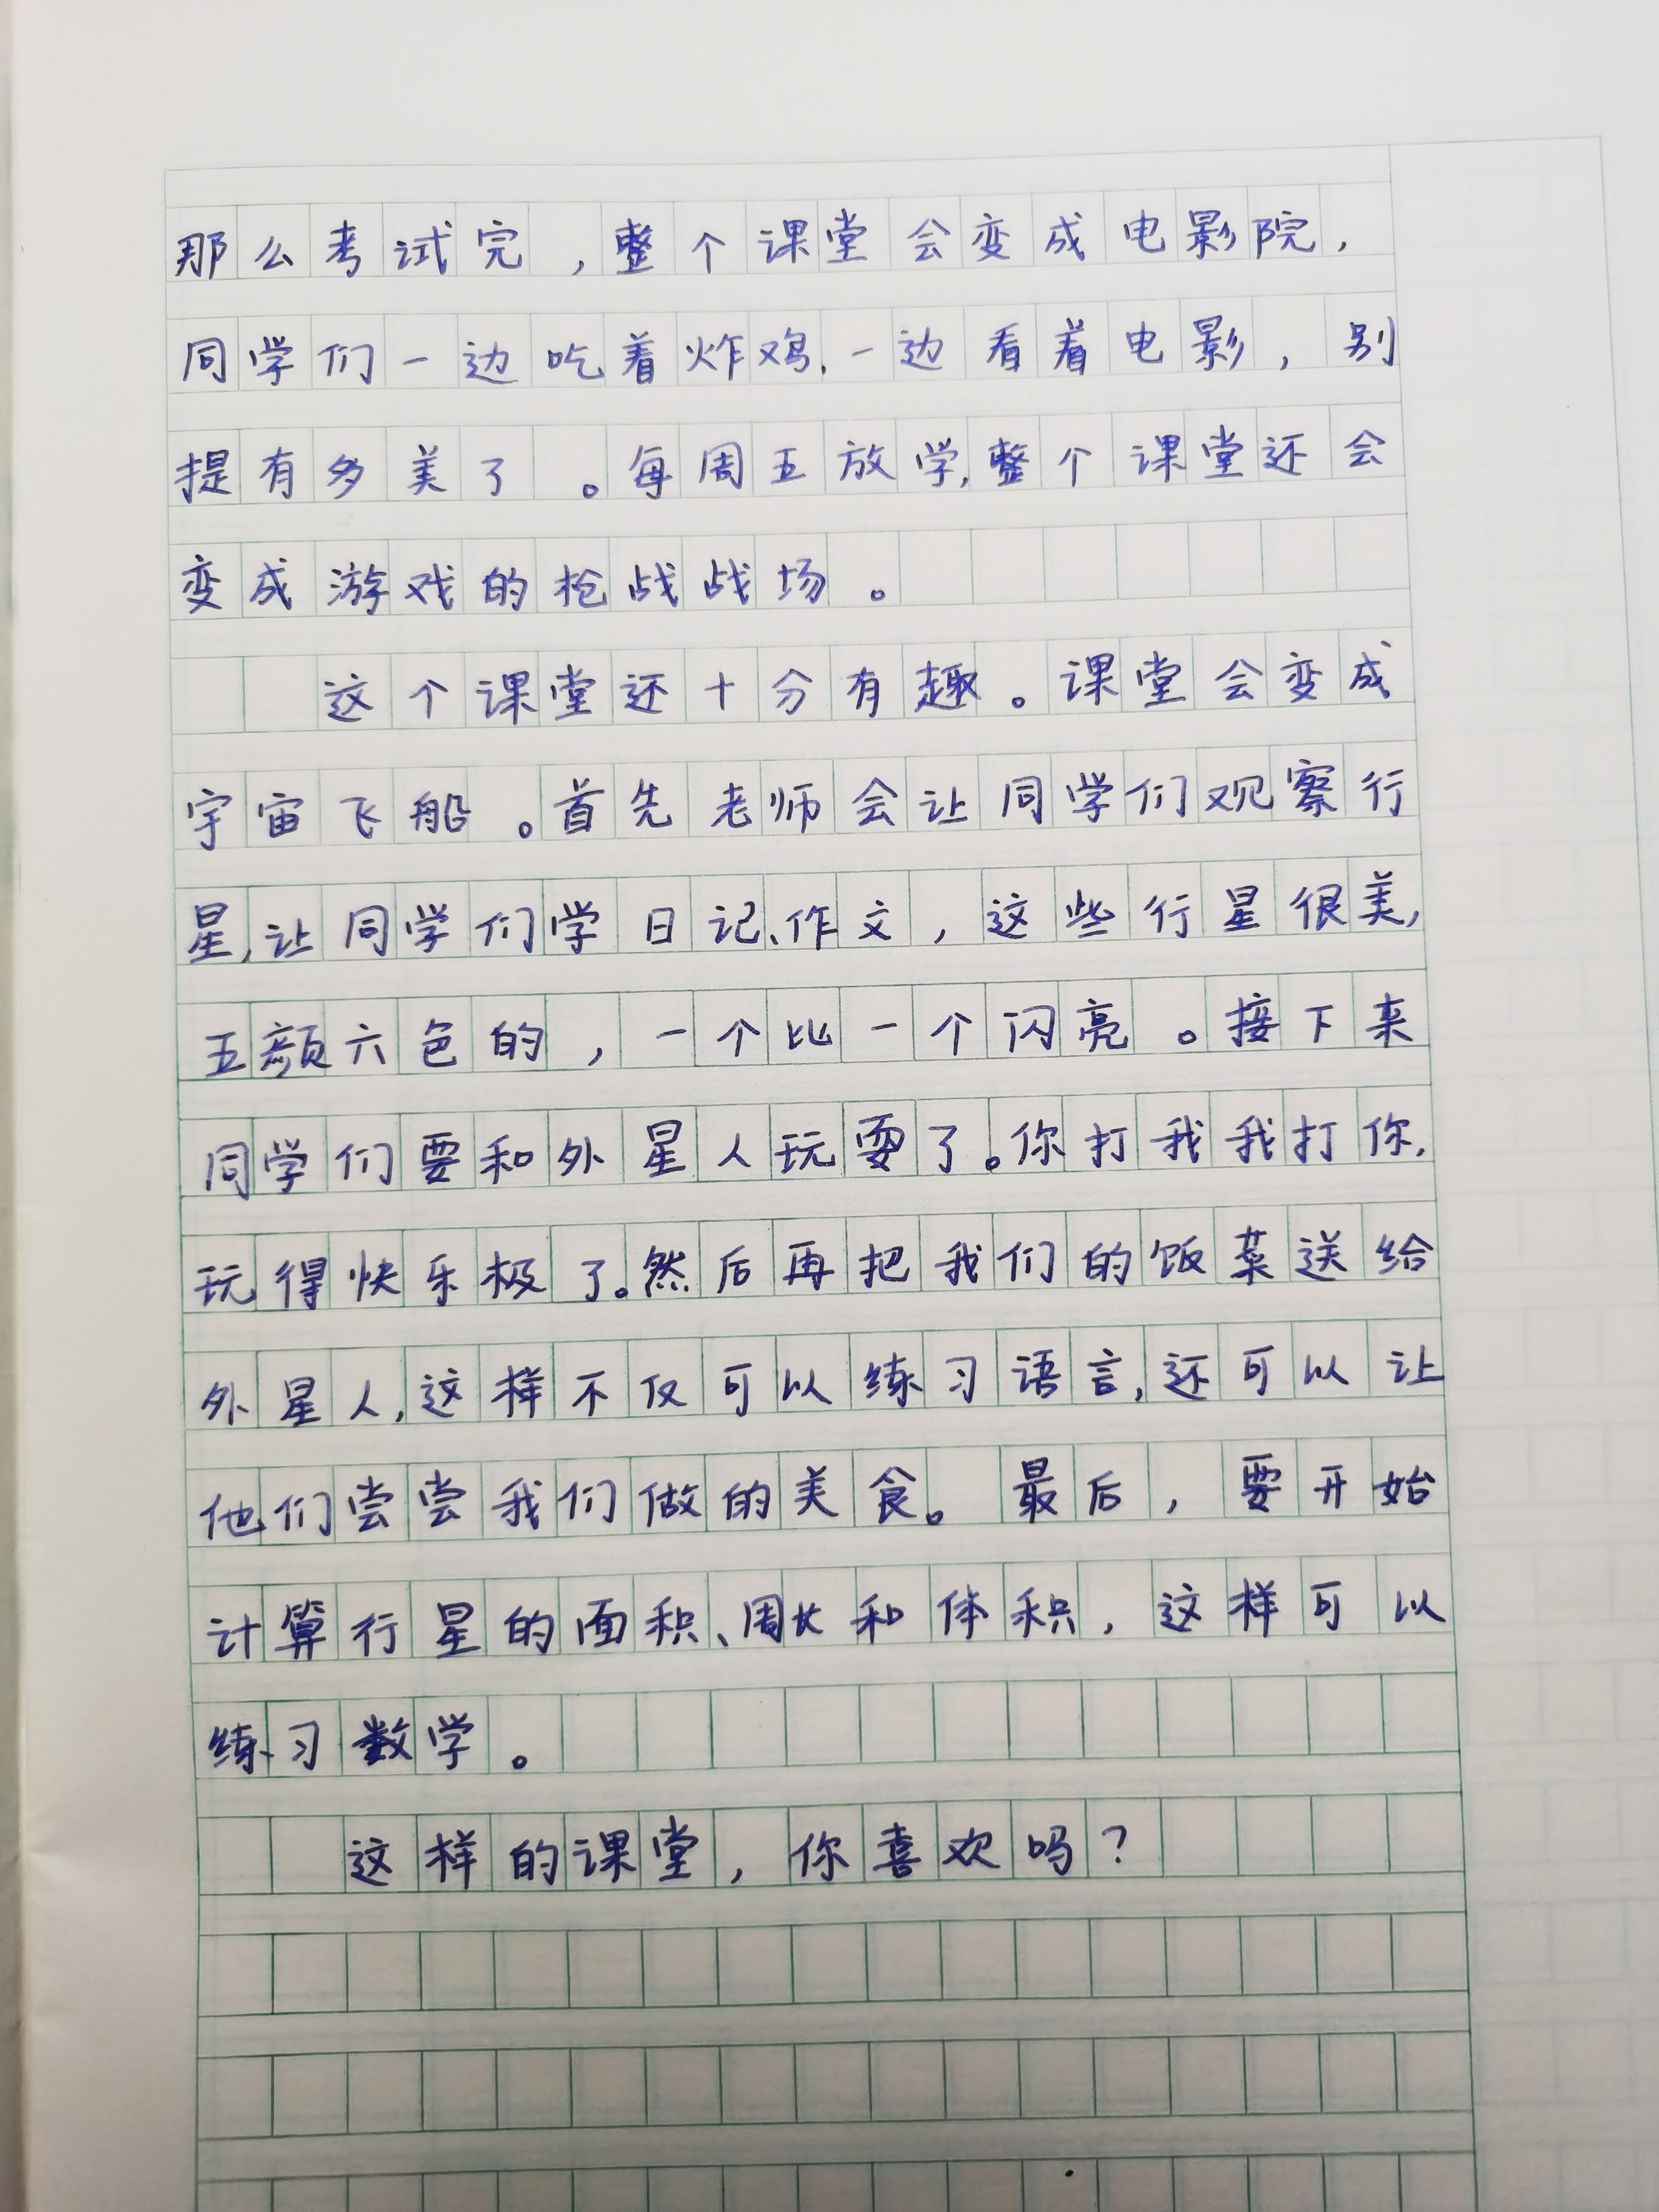 那么考试完，整个课堂会变成电影院，
同学们一边吃着炸鸡，一边看着电影，别
提有多美了。每周五放学，整个课堂还会
变成游戏的枪战战场。
这个课堂还十分有趣。课堂会变成
宇宙飞船。首先老师会让同学们观察行
星，让同学们学日记、作文，这些行星很美，
五颜六色的，一个比一个闪亮。接下来
同学们要和外星人玩耍了。你打我我打你，
玩得快乐极了。然后再把我们的饭菜送给
外星人，这样不仅可以练习语言，还可以让
他们尝尝我们做的美食。最后，要开始
计算行星的面积、周长和体积，这样可以
练习数学。
这样的课堂，你喜欢吗？